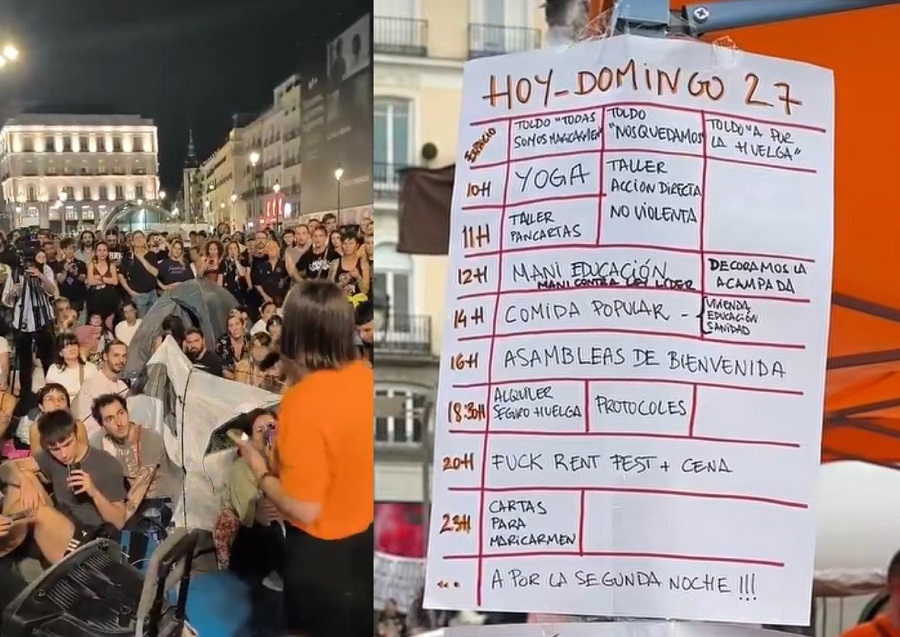 HOY_DOMINGO 27
ESPACIO
TOLDO "TODAS
SOMOS MARICARMEN"
TOLDO
"NOSQUEDAMOS"
TOLDO "A POR
LA HUELGA"
10H
YOGA
TALLER
ACCION DIRECTA
NO VIOLENTA
11H
TALLER
PANCARTAS
12H
MANI EDUCACIÓN
MANI CONTRA LEY LIDER
DECORAMOS LA
ACAMPADA
14H
COMIDA POPULAR - {
VIVIENDA
EDUCACIÓN
SANIDAD
16H
ASAMBLEAS DE BIENVENIDA
18:30H
ALQUILER
SEGURO HUELGA
PROTOCOLES
20H
FUCK RENT FEST + CENA
23H
CARTAS
PARA
MARICARMEN
...
A POR LA SEGUNDA NOCHE !!!